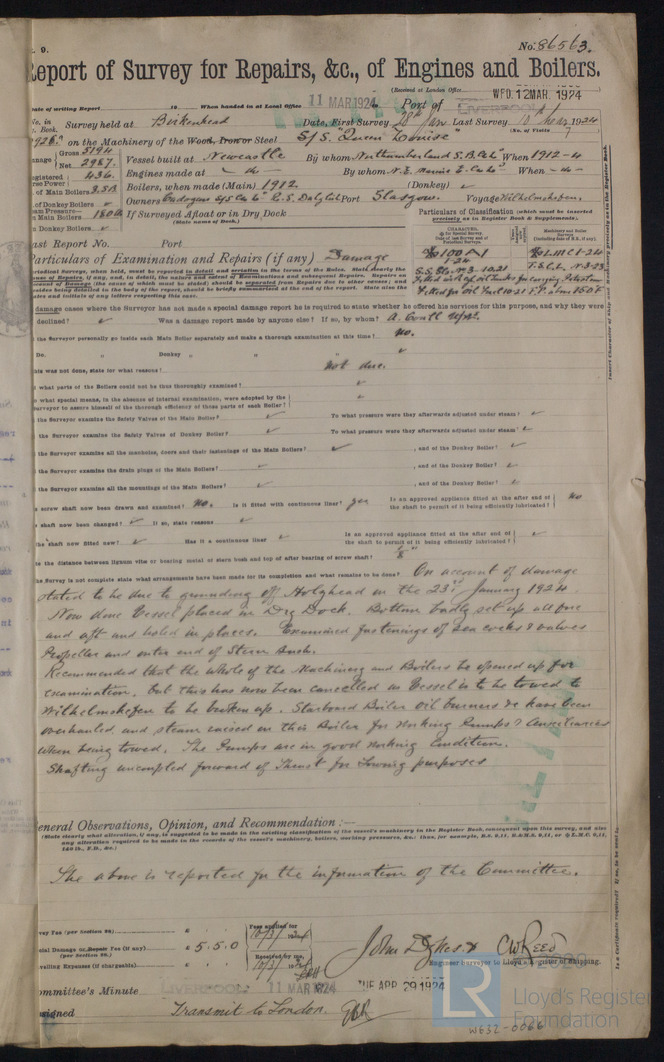 . 9.
No. 86563.
Report of Survey for Repairs, &c., of Engines and Boilers.
(Received at London Office
WED. 12 MAR. 1924
Date of writing Report 19 When handed in at Local Office 11 MAR 1924 Port of LIVERPOOL
No. in Survey held at Birkenhead Date, First Survey 28th Jan Last Survey 10th Mar 1924
Book. (No. of Visits 7
on the Machinery of the Wood, Iron or Steel S/S "Queen Louise"
Gross 5194
Net 2987
Vessel built at Newcastle By whom Northumberland S.B. Co Ld When 1912-4
Registered 436 Engines made at - do - By whom N.E. Marine E. Co Ld When - do -
of Main Boilers 3 S.B. Boilers, when made (Main) 1912 (Donkey) ✓
of Donkey Boilers ✓ Owners Cadogan S/S Co Ld R.S. Dalgliesh Port Glasgow. Voyage Wilhelmshafen.
Steam Pressure— in Main Boilers 180 lb If Surveyed Afloat or in Dry Dock
(State name of Dock.)
in Donkey Boilers ✓
Particulars of Classification (which must be inserted precisely as in Register Book & Supplements).
Last Report No. Port
Particulars of Examination and Repairs (if any) Damage
+100A1 +LMC 1-24
1-24
S.S. No. 3-10.21
Fitted for oil fuel 10-21 F.P. above 150°F
damage cases where the Surveyor has not made a special damage report he is required to state whether he offered his services for this purpose, and why they were
declined? ✓ Was a damage report made by anyone else? If so, by whom?
the Surveyor personally go inside each Main Boiler separately and make a thorough examination at this time? no.
Do. " Donkey " " " ✓
this was not done, state for what reasons? Not due.
what parts of the Boilers could not be thus thoroughly examined? ✓
what special means, in the absence of internal examination, were adopted by the Surveyor to assure himself of the thorough efficiency of those parts of each Boiler? ✓
the Surveyor examine the Safety Valves of the Main Boiler? ✓ To what pressure were they afterwards adjusted under steam? ✓
the Surveyor examine the Safety Valves of Donkey Boiler? ✓ To what pressure were they afterwards adjusted under steam? ✓
the Surveyor examine all the manholes, doors and their fastenings of the Main Boilers? ✓ , and of the Donkey Boiler? ✓
the Surveyor examine the drain plugs of the Main Boilers? ✓ , and of the Donkey Boiler? ✓
the Surveyor examine all the mountings of the Main Boilers? ✓ , and of the Donkey Boiler? ✓
screw shaft now been drawn and examined? No. Is it fitted with continuous liner? yes Is an approved appliance fitted at the after end of the shaft to permit of it being efficiently lubricated? no
shaft now been changed? ✓ If so, state reasons ✓
the shaft now fitted new? ✓ Has it a continuous liner ✓ Is an approved appliance fitted at after end of the shaft to permit of it being efficiently lubricated? ✓
is the distance between lignum vitæ or bearing metal of stern bush and top of after bearing of screw shaft?
the Survey is not complete state what arrangements have been made for its completion and what remains to be done? On account of damage
stated to be due to grounding off Holyhead on the 23rd January 1924.
Now done Vessel placed in Dry Dock. Bottom badly set up all fore
and aft and holed in places. Examined fastenings of sea cocks & valves
Propeller and outer end of Stern bush.
Recommended that the whole of the Machinery and Boilers be opened up for
examination, but this has now been cancelled as Vessel is to be towed to
Wilhelmshafen to be broken up. Starboard Boiler oil burners &c have been
overhauled and steam raised in this Boiler for working Pumps & Auxiliaries
when being towed. The Pumps are in good working Condition.
Shafting uncoupled forward of Thrust for Towing purposes
General Observations, Opinion, and Recommendation:—
(State clearly what alteration, if any, is suggested to be made in the existing classification of the vessel's machinery in the Register Book, consequent upon this survey, and also
any alteration required to be made in the records of the vessel's machinery, boilers, working pressures, &c.:
The above is reported for the information of the Committee.
Survey Fee (per Section 29) £ : : Fees applied for 10/3/24
Special Damage or Repair Fee (if any) £ 5.5.0
(per Section 29.)
Received by me,
Travelling Expenses (if chargeable) £ : : 10/3/1924
John Dykes & C W Reed
Engineer Surveyor to Lloyd's Register of Shipping.
Committee's Minute LIVERPOOL 11 MAR 1924 TUE APR. 29 1924
Assigned Transmit to London.
LR
© 2021
Lloyd's Register
Foundation
W632-0066